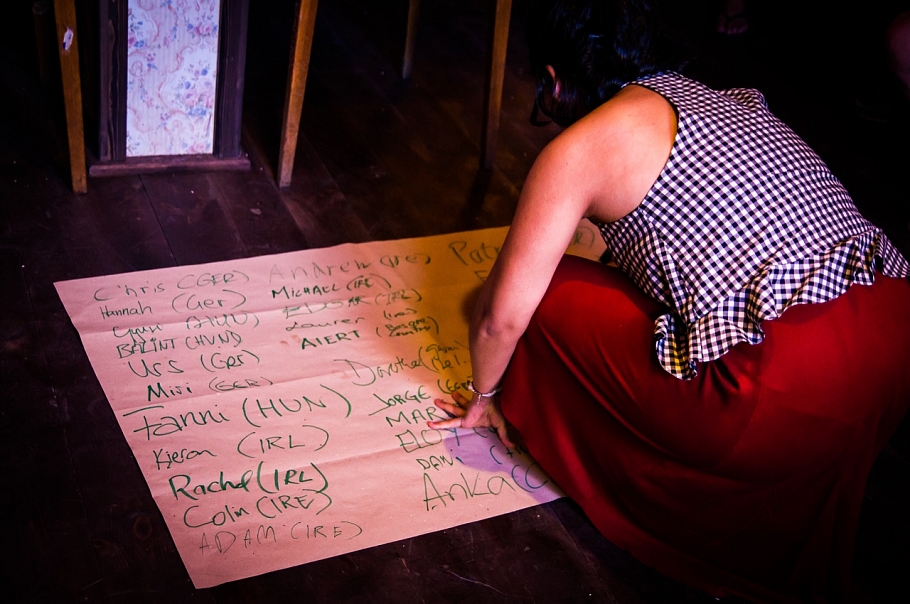 Chris (GER)
Hannah (Ger)
BALINT (HUN)
Urs (GER)
Miri (GER)
Fanni (HUN)
Kieran (IRL)
Rachel (IRL)
Colin (IRE)
ADAM (IRE)
Andrew (IRE)
MICHAEL (IRE)
EDGAR (IRL)
AIERT
Dorothea
JORGE
MAR
ELOY
DANI
Anka (
Patr